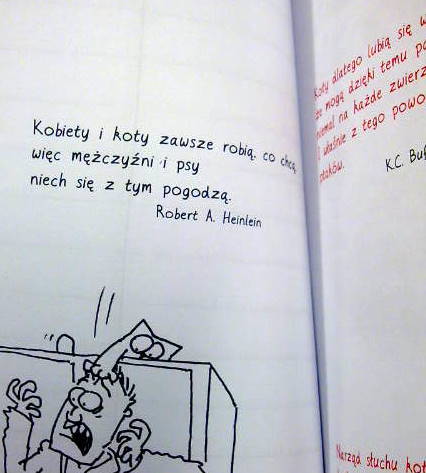 Kobiety i koty zawsze robią, co chcą,
więc mężczyźni i psy
niech się z tym pogodzą.
Robert A. Heinlein
Koty dlatego lubią się
że mogą dzięki temu
niemal na każde
I właśnie z tego
ptaków.
K.C.
Narząd słuchu